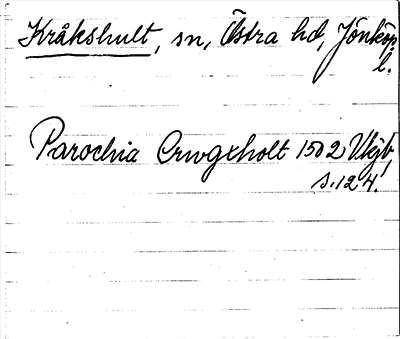 Kråkshult, sn, Östra hd, Jönköp.
l.
Parochia Crwgxholt 1502 Vkjb,
s. 124.